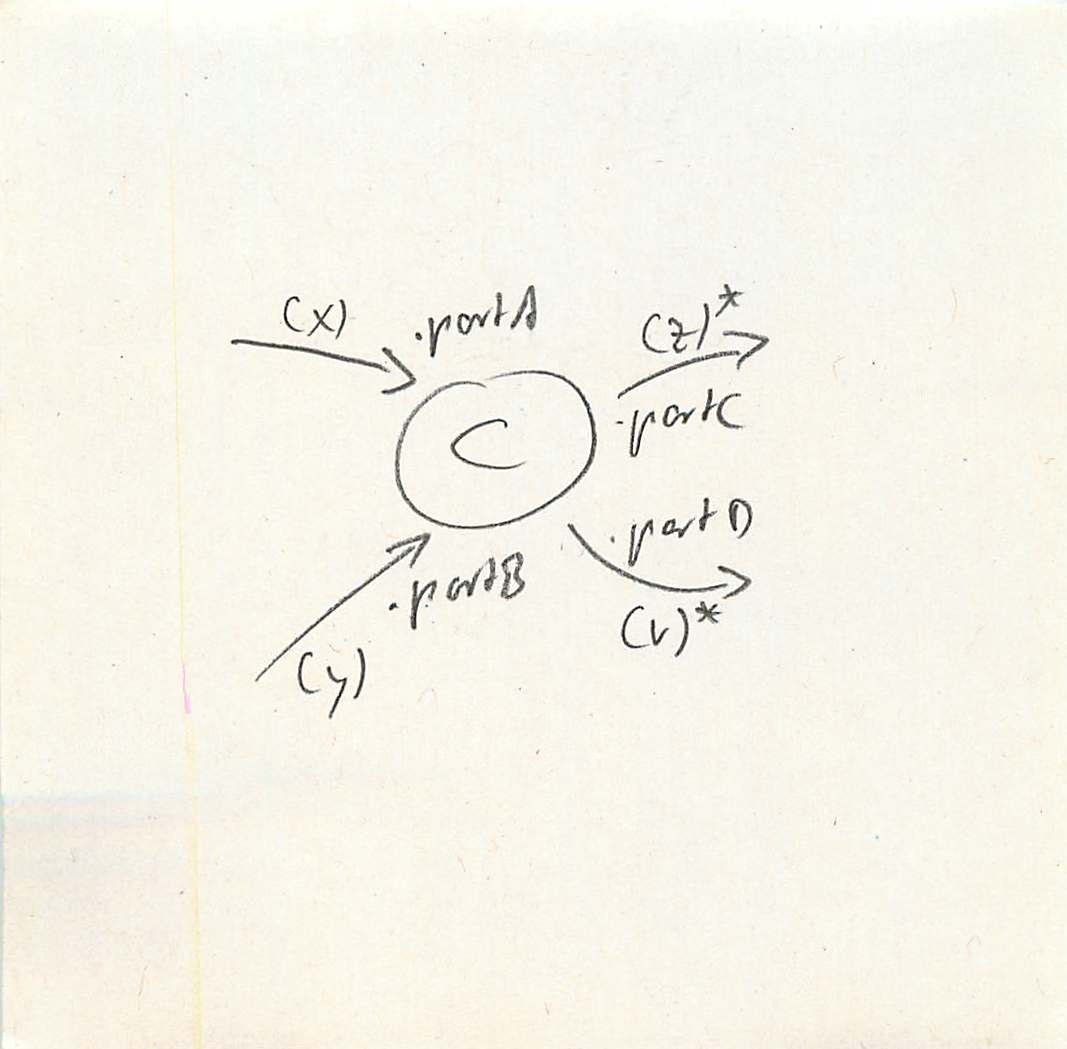 (x)
.portA
(z)*
.portC
C
.portD
.portB
(v)*
(y)